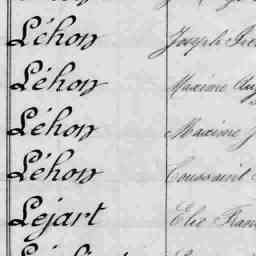 Léhon Joseph
Léhon Maxime
Léhon Maxime J
Léhon Toussaint
Lejart Elie Fran